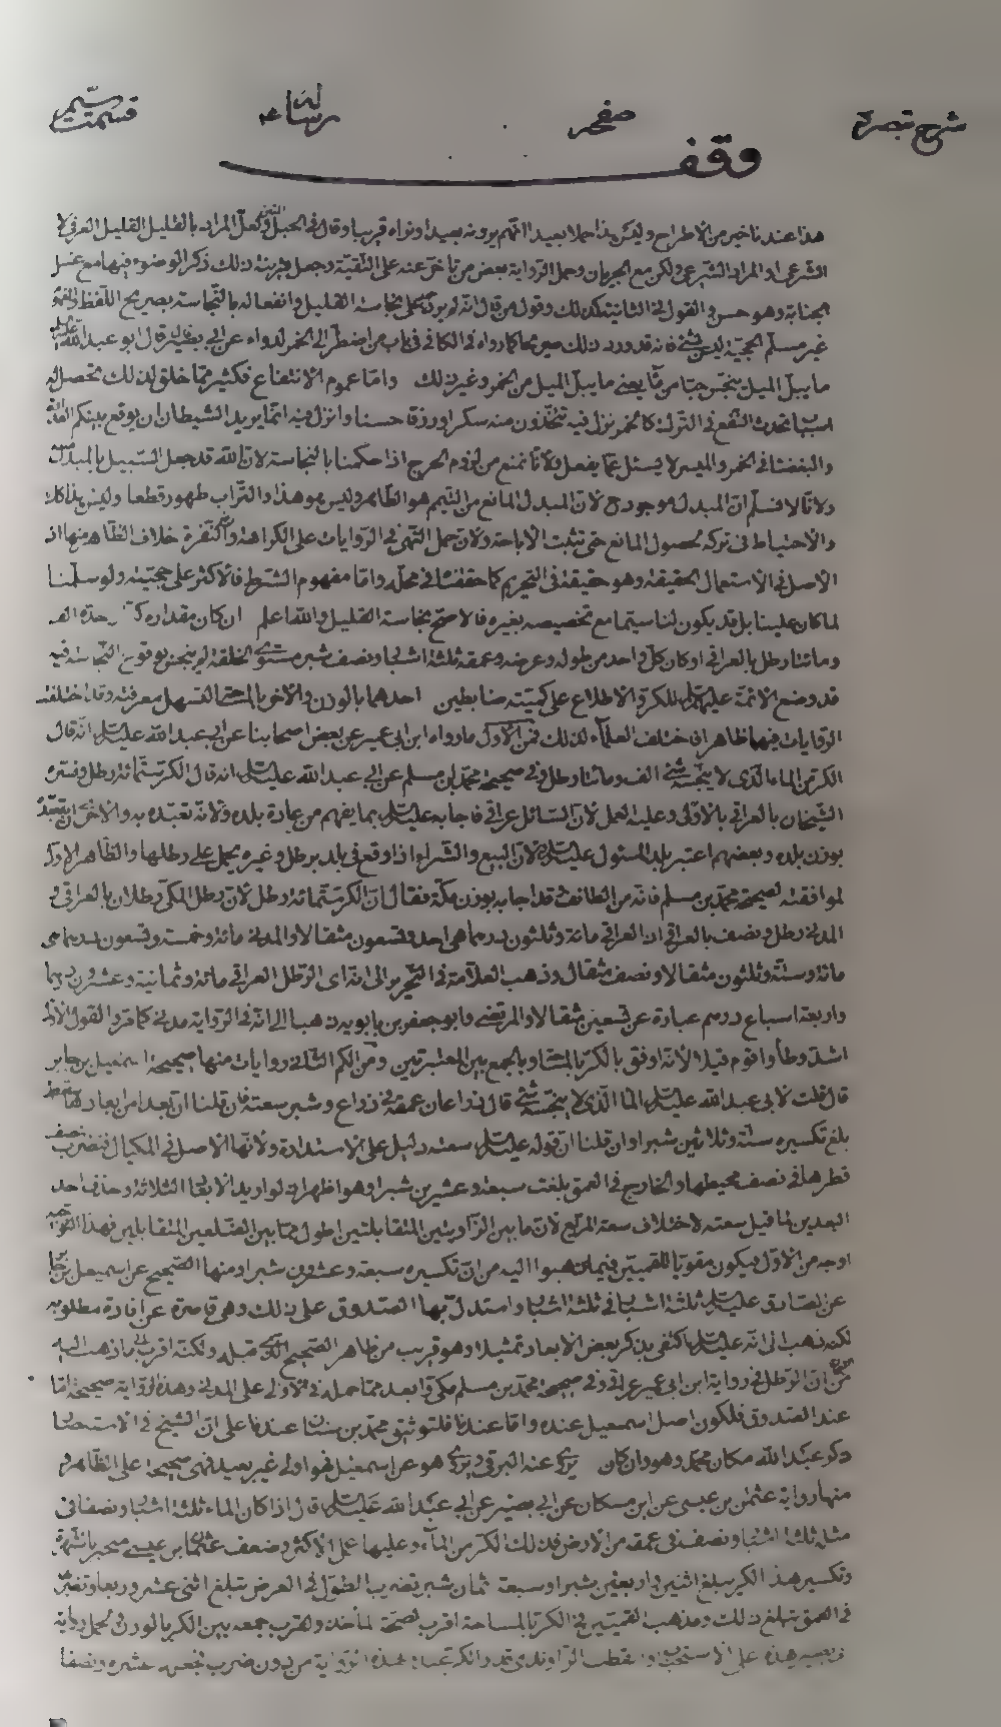 شرح تبصرة صفحه رساله قسمت سیم
وقف
هذا عند تاخير من الاطراح وليكن هذا حملا بعيدا انهم يرونه بعيدا ونراه قريبا وقال في الحبل لعل المراد بالقليل القليل العرفي لا
الشرعي او المراد الشرعي ولكن مع الجريان وحمل الرواية بعض من تاخر عنه على التقية وجعل قرينة ذلك ذكر الوضوء فيها مع غسل
الجنابة وهو حسن في القول في الثانية كذلك وقول من قال انه لم يرد على نجاسة القليل وانفعاله بالنجاسة بصريح اللفظ
غير مسلم الحجية ليس بشئ فانه قد ورد ذلك صريحا كما رواه في الكافي في باب من اضطر الى الخمر لدواء عن ابي بصير قال قال ابو عبد الله
ما يبل الميل ينجس حبا من ماء يعني ما يبل الميل من الخمر وغير ذلك واما عموم الانتفاع فكثير مما خلق لذلك تحصل له
اسباب تحدث النفع في الترك كالخمر نزل فيه تتخذون منه سكرا ورزقا حسنا وانزل فيه انما يريد الشيطان ان يوقع بينكم العداوة
والبغضاء في الخمر والميسر لا يسئل عما يفعل ولانا نمنع من لزوم الحرج اذا حكمنا بالنجاسة لان الله قد جعل السبيل بالمبدل منه
ولانا لا نسلم ان المبدل موجود ح لان المبدل المانع من التيمم هو الطاهر وليس هو هذا والتراب طهور قطعا وليس هذا كك
والاحتياط في تركه لحصول المانع حتى تثبت الاباحة ولان حمل النهي في الروايات على الكراهة والنفرة خلاف الظاهر منها اذ
الاصل في الاستعمال الحقيقة وهو حقيقة في التحريم كما حققنا في محله واما مفهوم الشرط فالاكثر على حجيته ولو سلمنا
لما كان علينا بل قد يكون لنا سيما مع تخصيصه بغيره فالاصح نجاسة القليل والله اعلم ان كان مقداره حده الف
ومائتا رطل بالعراقي او كان كل واحد من طوله وعرضه وعمقه ثلثة اشبار ونصف شبر مستوي الخلقة لم ينجس بوقوع النجاسة فيه
قد وضع الائمة عليهم السلام للكر والاطلاع على كميته ضابطين احدهما بالوزن والاخر بالمساحة لتسهل معرفته وقد اختلفت
الروايات فيهما ظاهرا فاختلف العلماء لذلك فمن الاول ما رواه ابن ابي عمير عن بعض اصحابنا عن ابي عبد الله عليه السلام انه قال
الكر من الماء الذي لا ينجسه شئ الف ومائتا رطل وفي صحيحة محمد بن مسلم عن ابي عبد الله عليه السلام انه قال الكر ستمائة رطل وفسره
الشيخان بالعراقي بالاولى وعليه العمل لان السائل عراقي فاجابه عليه السلام بما يفهم من عادة بلده ولانه تعبده به والاخرى ان تعبد
بوزن بلده وبعضهم اعتبر بلد المسئول عليه السلام لان البيع والشراء اذا وقع في بلد برطل وغيره يحمل على رطلها والظاهر الاول
لموافقته لصحيحة محمد بن مسلم فانه من الطائف فقد اجابه بوزن مكة فقال ان الكر ستمائة رطل لان رطل المكي رطلان بالعراقي و
المدني رطل ونصف بالعراقي ان العراقي مائة وثلثون درهما هي احد وتسعون مثقالا والمدني مائة وخمسة وتسعون درهما هي
مائة وستة وثلثون مثقالا ونصف مثقال وذهب العلامة في التحرير الى انه اي الرطل العراقي مائة وثمانية وعشرون درهما
واربعة اسباع درهم عبارة عن تسعين مثقالا والمرتضى وابو جعفر بن بابويه ذهبا الى انه في الرواية مدني كما مر والقول الاول
اشد وطأ واقوم قيلا لانه اوفق بالكر بالمساحة وبالجمع بين المعتبرتين ومن الكم الثاني روايات منها صحيحة اسمعيل بن جابر
قال قلت لابي عبد الله عليه السلام الماء الذي لا ينجسه شئ قال ذراعان عمقه في ذراع وشبر سعته فان قلنا ان
بلغ تكسيره ستة وثلاثين شبرا وان قلنا ان قوله عليه السلام سعته دليل على الاستدارة ولانها الاصل في المكيال فنضرب نصف
قطرها في نصف محيطها والخارج في العمق بلغت سبعة وعشرين شبرا وهو اظهر اذ لو اريد الابعاد الثلاثة وحذف احد
البعدين لما قيل سعته لاختلاف سعة المربع لان ما بين الزاويتين المتقابلتين اطول مما بين الضلعين المتقابلين فهذا التوجيه
اوجه من الاول فيكون مقويا للقميين فيما ذهبوا اليه من ان تكسيره سبعة وعشرون شبرا ومنها الصحيح عن اسمعيل بن جابر
عن الصادق عليه السلام ثلثة اشبار في ثلثة اشبار واستدل بها الصدوق على ذلك وهي قاصرة عن افادة مطلوبه
لكنه ذهب الى انه عليه السلام اكتفى بذكر بعض الابعاد تمثيلا وهو قريب من ظاهر الصحيح الذي قبله ولكنه اقرب ما ذهب اليه
من ان الرطل في رواية ابن ابي عمير عراقي وفي صحيحة محمد بن مسلم مكي وابعد مما حمله في الاولى على المدني وهذه الرواية صحيحة اما
عند الصدوق فلكون اصل اسمعيل عنده واما عندنا فلتوثيق محمد بن سنان عندنا على ان الشيخ في الاستبصار
ذكر عبد الله مكان محمد وهو وان كان يروي عنه البرقي ويروي هو عن اسمعيل فهو اولى غير بعيد فهي صحيحة على الظاهر و
منها رواية عثمان بن عيسى عن ابن مسكان عن ابي بصير عن ابي عبد الله عليه السلام قال اذا كان الماء ثلثة اشبار ونصفا في
مثله ثلثة اشبار ونصف في عمقه من الارض فذلك الكر من الماء وعليها عمل الاكثر وضعف عثمان بن عيسى منجبر بالشهرة
وتكسير هذا الكر يبلغ اثنين واربعين شبرا وسبعة ثمان شبر تضرب الطول في العرض تبلغ اثنى عشر وربعا وتضرب
في العمق تبلغ ذلك ومذهب القميين في الكر بالمساحة اقرب لصحة الماخذ ولقرب جمعه بين الكر بالوزن فحمل رواية
ابي بصير هذه على الاستحباب والقطب الراوندي قدر الكر بهذه الرواية من دون ضرب فبعده عشرة ونصفا